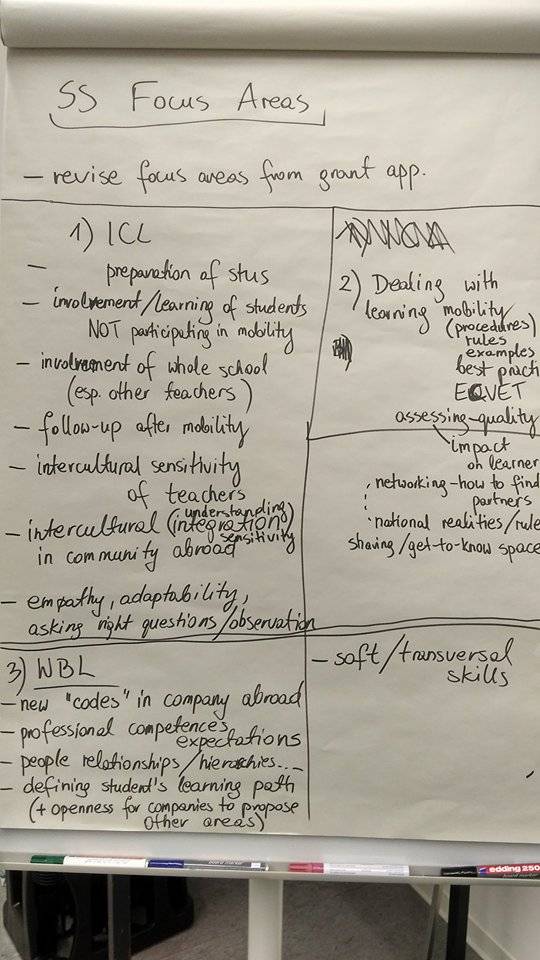 SS Focus Areas
- revise focus areas from grant app.
1) ICL
- preparation of stus
- involvement/learning of students
NOT participating in mobility
- involvement of whole school
(esp. other teachers)
- follow-up after mobility
- intercultural sensitivity
of teachers
understanding
- intercultural (integration)
sensitivity
in community abroad
- empathy, adaptability,
asking right questions/observation
2) Dealing with
learning mobility
(procedures)
rules
examples
best practi
ECVET
assessing-quality
impact
on learner
networking - how to find
partners
national realities/rule
sharing/get-to-know space
3) WBL
- new "codes" in company abroad
- professional competences
expectations
- people relationships/hierarchies...
- defining student's learning path
(+ openness for companies to propose
other areas)
- soft/transversal
skills
board marker
edding 250